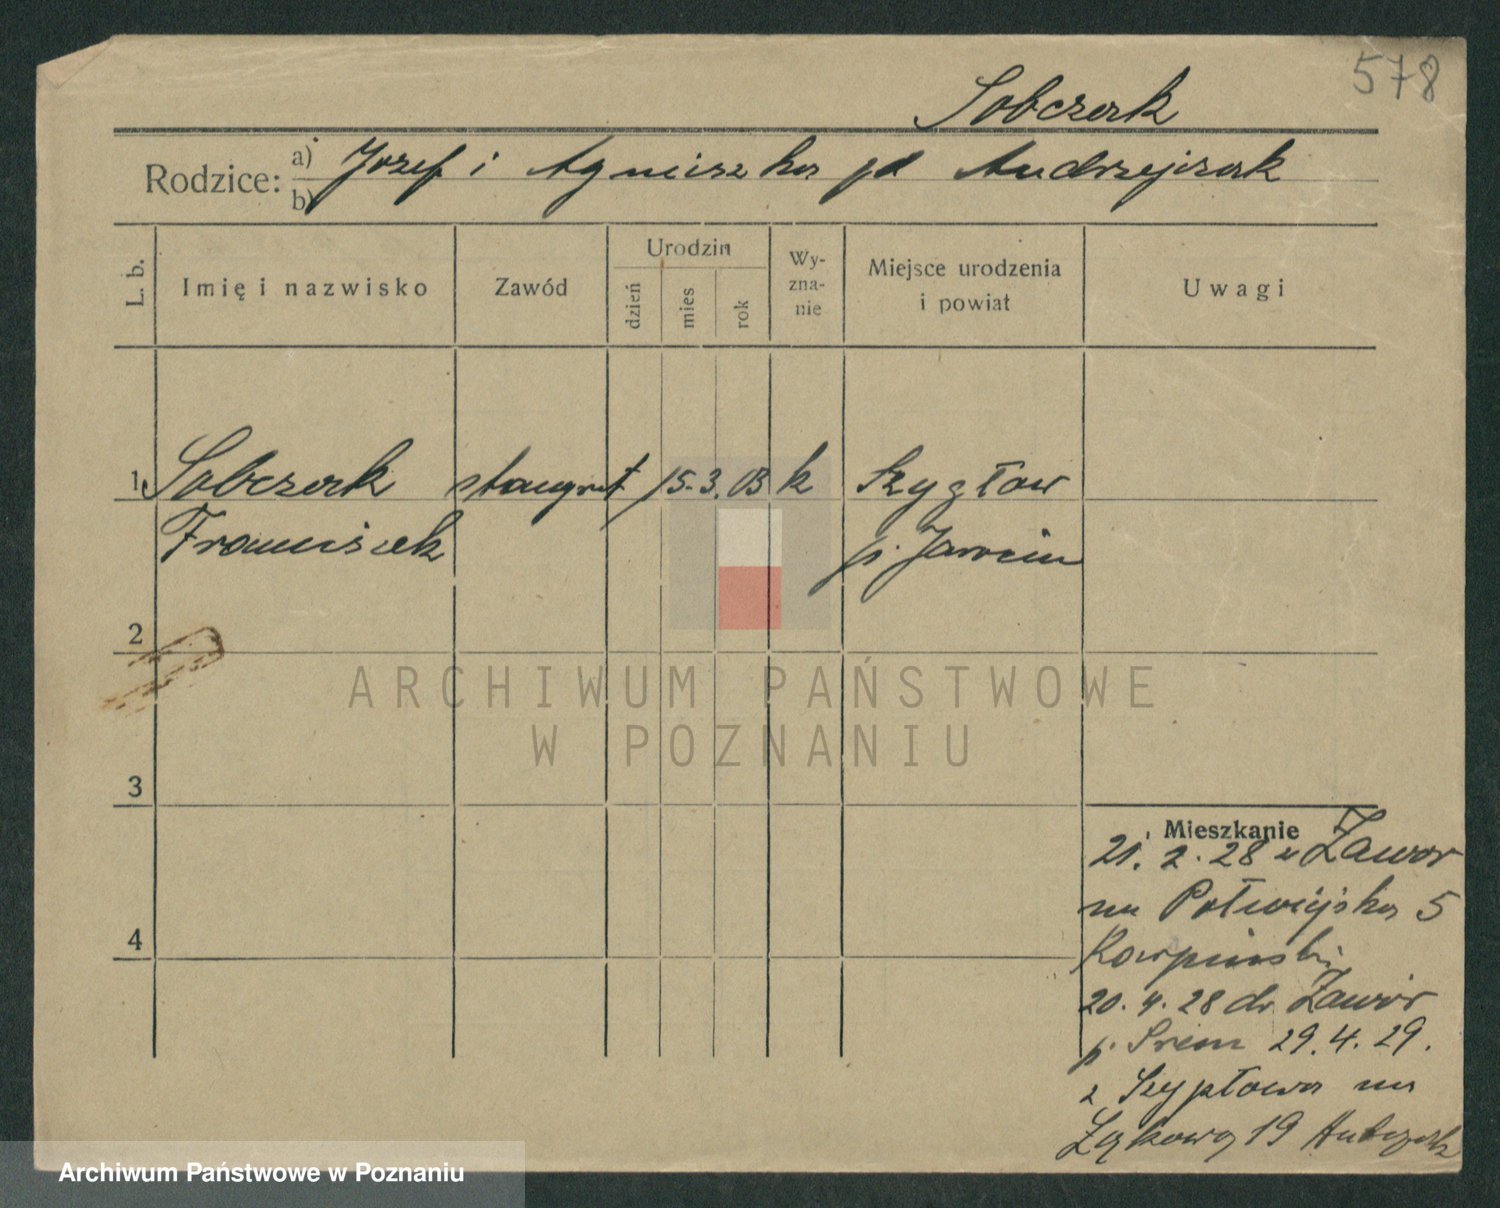 578
Sobczak
Rodzice: a) Józef i Agnieszka pd Andrzejczak
b)
L. b.
Imię i nazwisko
Zawód
Urodzin
dzień
mies
rok
Wy-
zna-
nie
Miejsce urodzenia
i powiat
Uwagi
1 Sobczak stangret 15. 3. 03 k
Franciszek p. Jarocin
2
ARCHIWUM PAŃSTWOWE
W POZNANIU
3
Mieszkanie
21. 2. 28 z Zawor
na 5
20. 4. 28 do Zawór
p. Śrem 29. 4. 29.
z Szypłowa na
19
4
Archiwum Państwowe w Poznaniu